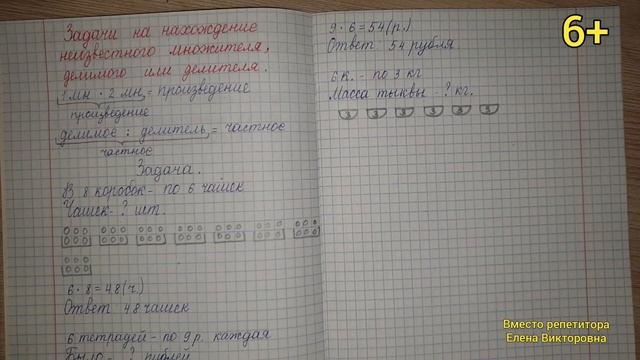 Задачи на нахождение
неизвестного множителя,
делимого или делителя.
1 мн · 2 мн = произведение
произведение
делимое : делитель = частное
частное
Задача.
В 8 коробок - по 6 чашек
Чашек - ? шт.
6 · 8 = 48 (ч.)
Ответ 48 чашек
6 тетрадей - по 9 р. каждая
Было - ? рублей
9 · 6 = 54 (р.)
Ответ 54 рубля.
6 к. - по 3 кг
Масса тыквы - ? кг.
3 3 3 3 3 3
6+
Вместо репетитора
Елена Викторовна